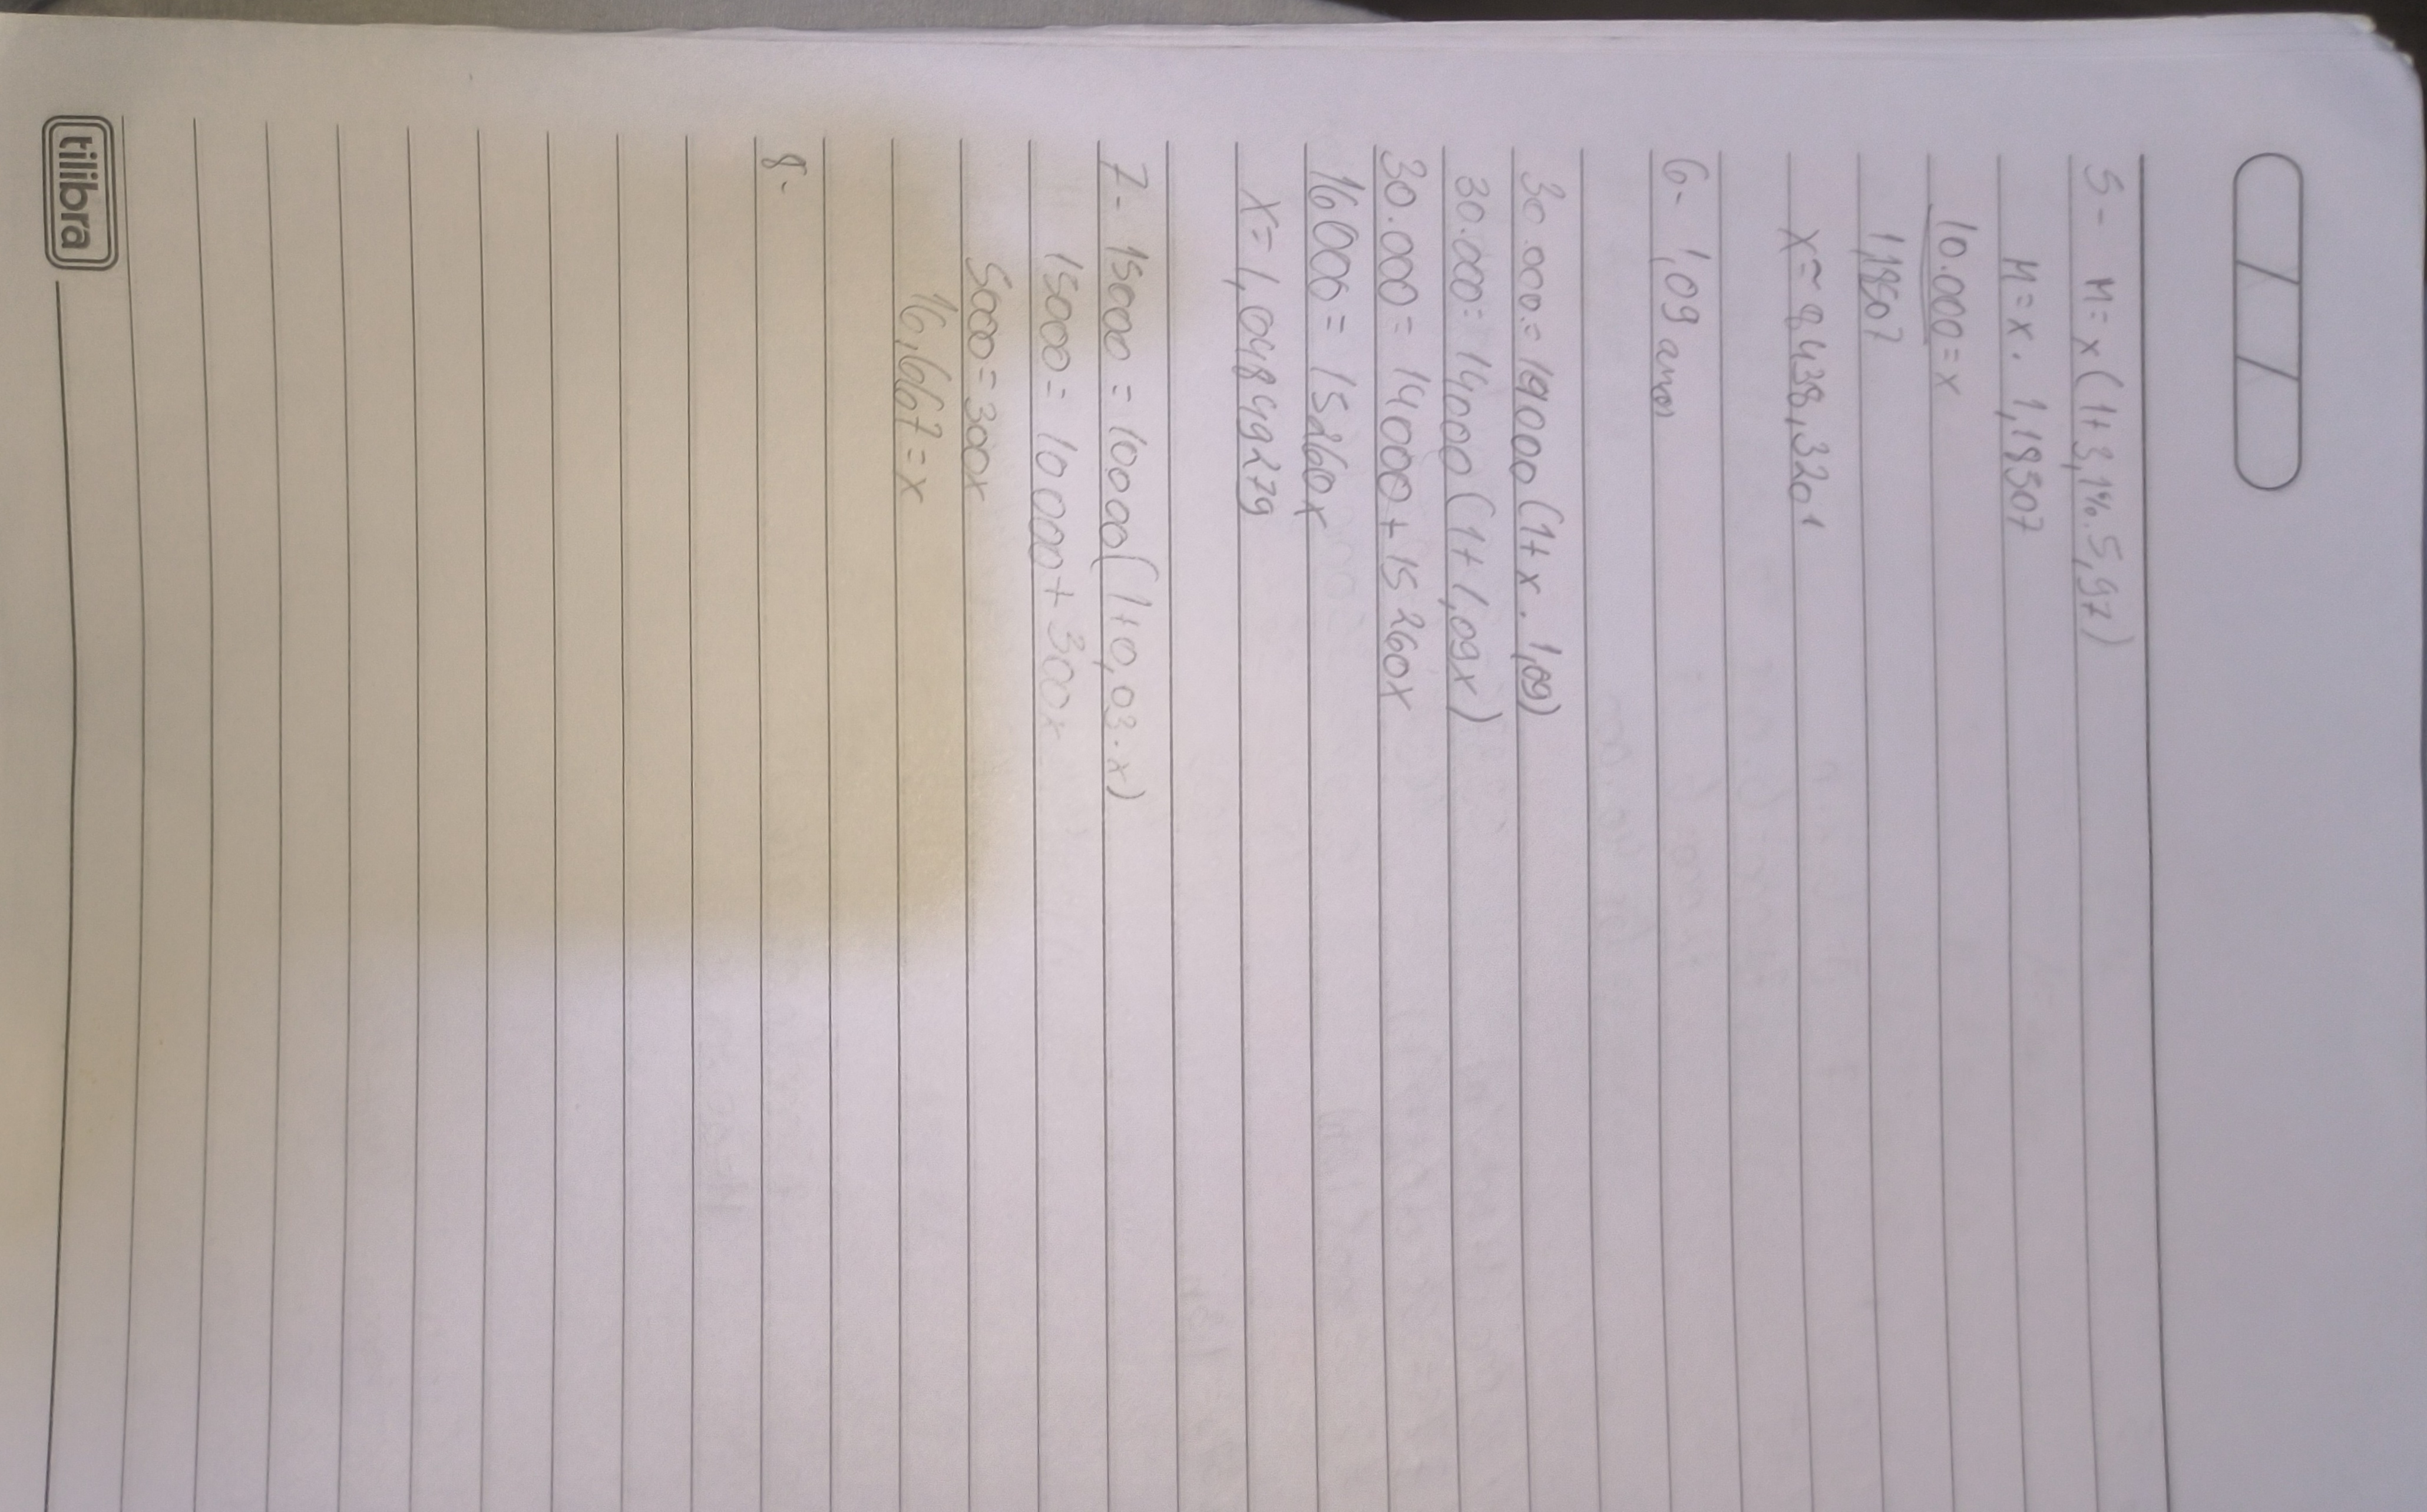 5- M=x(1+3,1%.5,97)
M=x. 1,18507
10.000=x
1,18507
x≈8.438,3201
6- 1,09 anos
30.000=14000(1+x.1,09)
30.000=14000(1+1,09x)
30.000=14000+15260x
16000=15260x
x=1,04849279
7- 15000=10000(1+0,03.x)
15000=10000+300x
5000=300x
16,6667=x
8-
tilibra